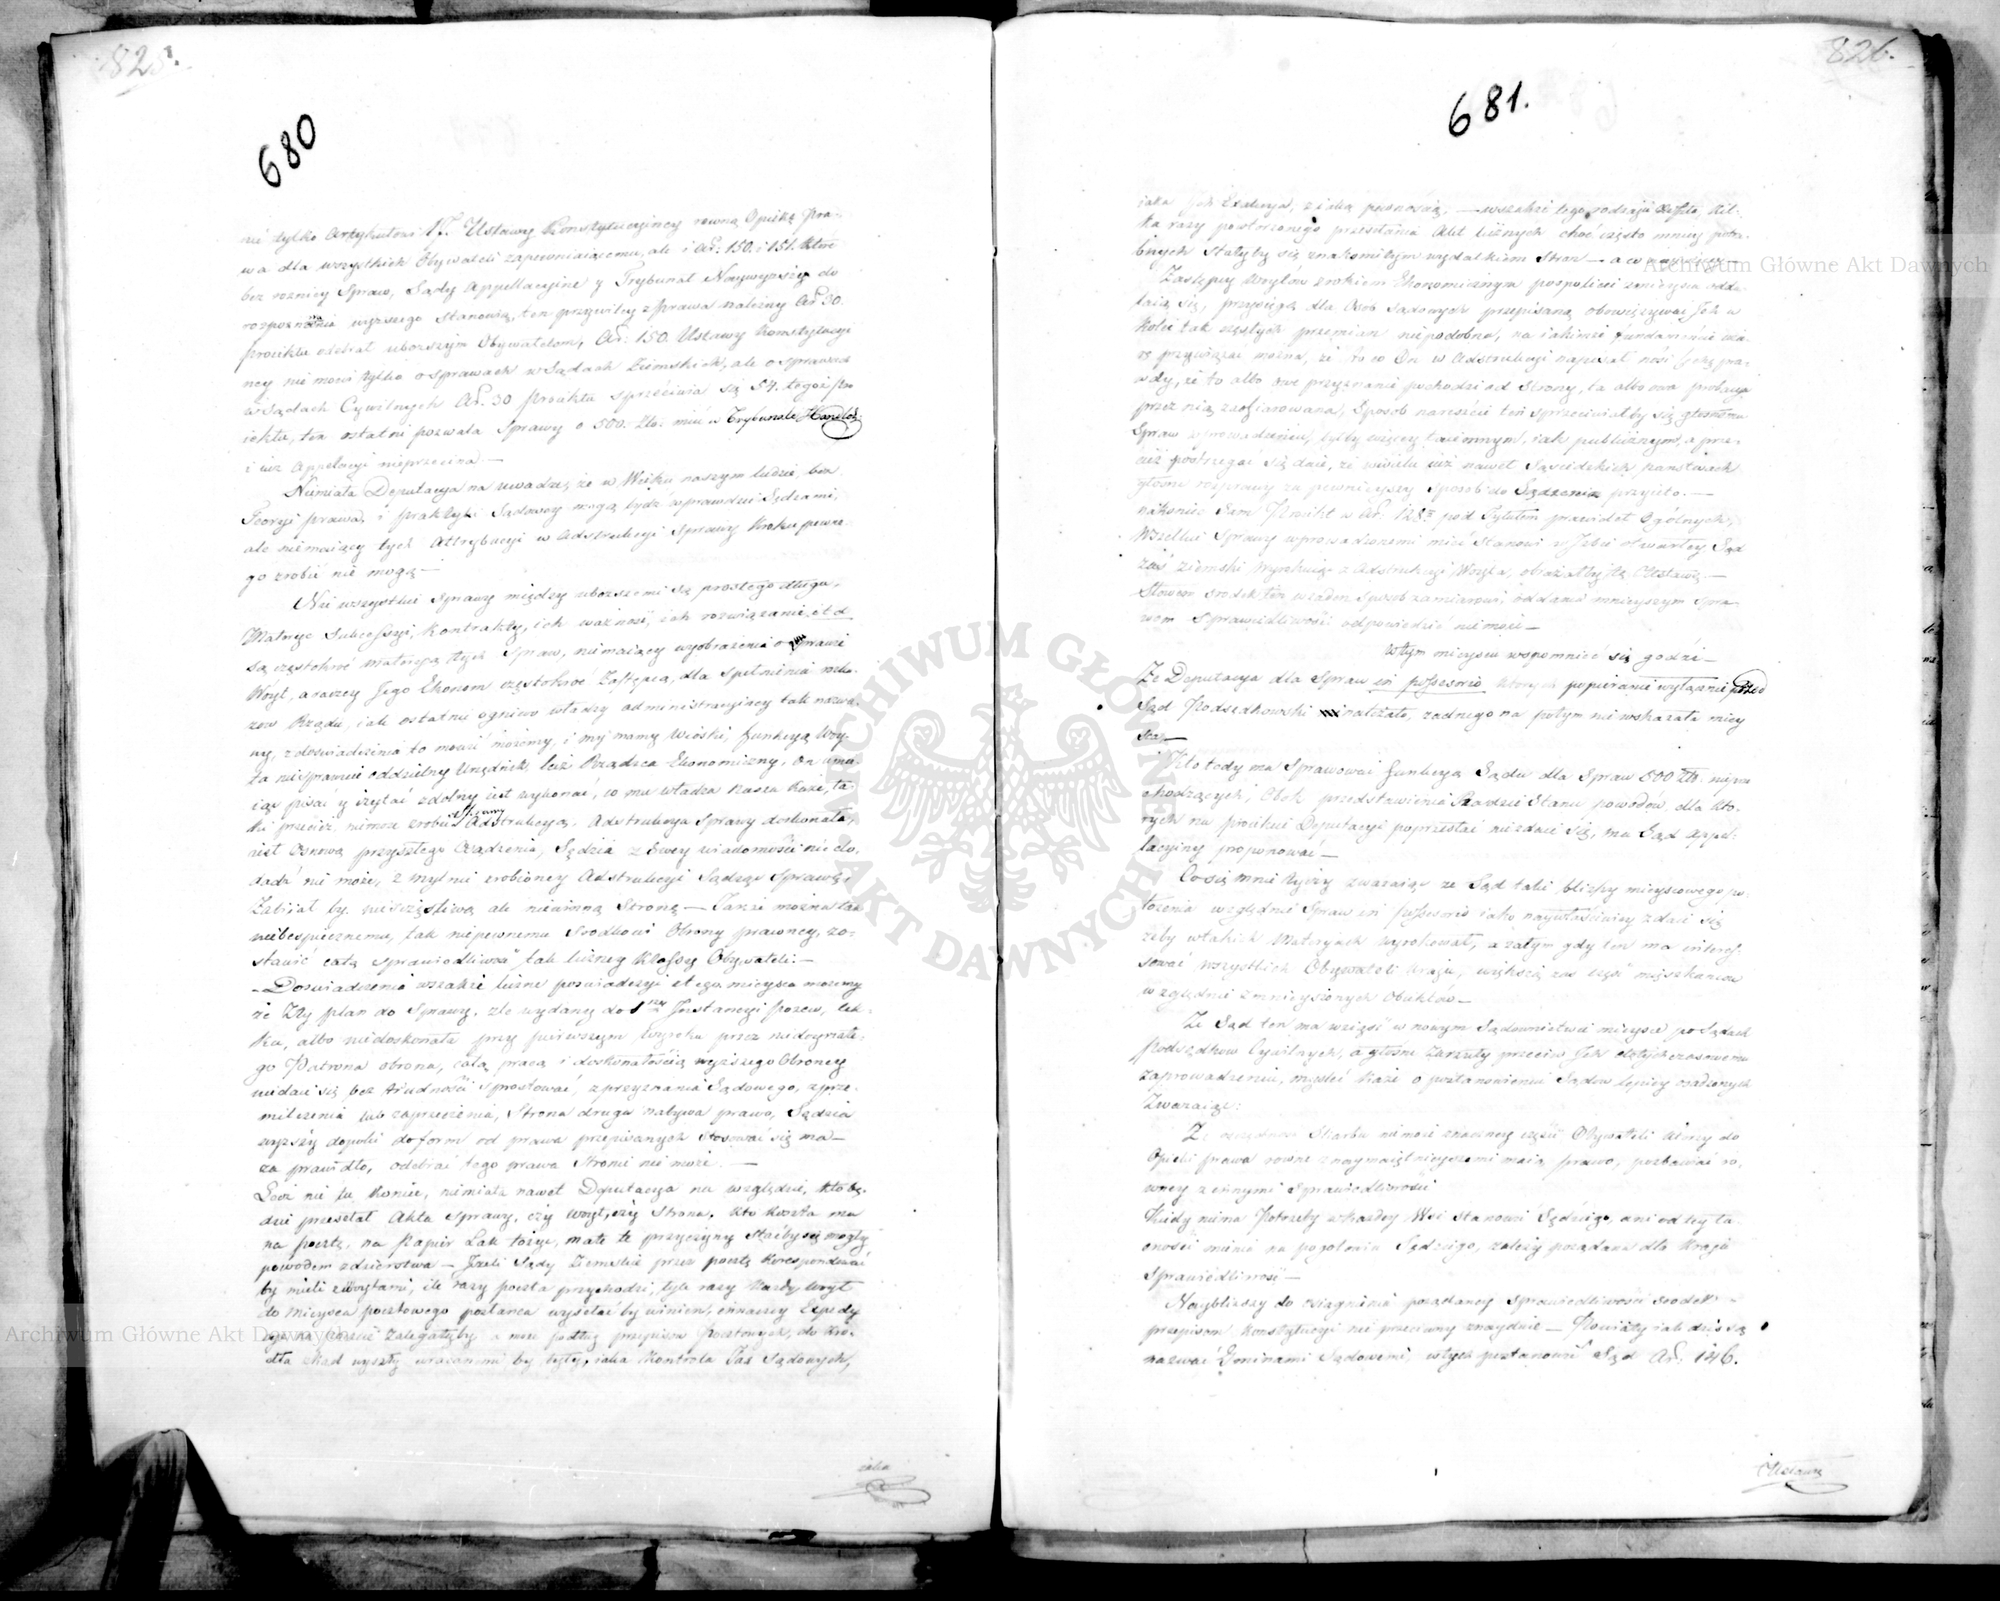 825.
680
nie tylko Artykułowi 17. Ustawy Konstytucyiney rowną Opiekę Pra-
wa dla wszystkich Obywateli zapewniaiącemu, ale i Art: 150. i 151. które
bez roznicy Spraw, Sądy Appellacyine y Trybunał Naywyższy do
rozpoznania wyższego stanowią, ten przywiley z Prawa należny Art 30.
Proiektu odebrał uboższym Obywatelom, Art: 150. Ustawy Konstytucyi
ney nie mowi tylko o sprawach w Sądach Ziemskich, ale o sprawach
w Sądach Cywilnych Art. 30 Proiektu sprzeciwia się 54. tegoż Pro
iektu, ten ostatni pozwala Sprawy o 500. Zło: mieć w Trybunale Handlo:
i iuż Appelacyi nieprzecina —
Niemiała Deputacya na uwadze, że w Wieku naszym ludzie, bez
Teoryi prawa, i praktyki Sądowey mogą bydź wprawdzie Sędziami,
ale niemaiący tych Attrybucyi w Adstrukcyi Sprawy Kroku pewne-
go zrobić nie mogą —
Nie wszystkie Sprawy między uboższemi są prostego długu,
Materye Sukcessyi, Kontrakty, ich ważność, ich rozwiązanie, etd
są częstokroć materyą tych Spraw, niemaiący wyobrażenia o prawie
Woyt, a raczey Jego Ekonom częstokroć Zastępca, dla spełnienia roska-
zow Rządu, iak ostatnie ogniwo władzy administracyiney tak nazwa-
ny, z doswiadczenia to mowić możemy, i my mamy Wioski, funkcyą Woy-
ta nie sprawuie oddzielny Urzędnik, lecz Rządca Ekonomiczny. On umie-
iąc pisać y czytać zdolny iest wykonać, co mu władza nasza każe, ta-
ki przecież, nimoże zrobić Sprawy Adstrukcyą. Adstrukcya Sprawy doskonała,
iest Osnową przyszłego Osądzenia, Sędzia z swey wiadomości nic do-
dadź nie może, z mylnie zrobioney Adstrukcyi Sądząc Sprawę,
Zabiiał by nieszczęśliwą ale niewinną Stronę — Jakże można tak
niebespiecznemu, tak niepewnemu Srodkowi Obrony prawney, zo-
stawić całą sprawiedliwość tak liczney Klassy Obywateli: —
— Doswiadczenia wszakże liczne poswiadczyć etego mieysca możemy
że Zły plan do Sprawy, źle wydany do 1szey Jnstancyi Pozew, lek-
ka, albo niedoskonała przy pierwszym Wyroku przez niedoyrzałe-
go Patrona obrona, całą pracą i doskonałością wyższego Obroncy
niedaie się bez trudności sprostować, z przyznania Sądowego, z prze-
milczenia lub zaprzeczenia, Strona druga nabywa prawo, Sędzia
wyższy dopoki do form od prawa przepisanych stosować się ma —
za prawidło, odebrać tego prawa Stronie nie może. —
Lecz nie tu Koniec, niemiała nawet Deputacya na względzie, kto bę-
dzie przesełał Akta Sprawy, czy woyt, czy Strona. Kto Koszta ma
na pocztę, na Papier Lak łożyć, małe te przyczyny Stałby się mogły
powodem zdzierstwa — Jezeli Sądy Ziemskie przez pocztę Korespondować
by mieli z woytami, ile razy poczta przychodzi, tyle razy Każdy Woyt
do Mieysca pocztowego posłanca wysełać by winien, inaczey Expedy
cye na poczcie zalegałyby a może podług przepisow Pocztowych, do Kro-
dła skąd wyszły wracanemi by były, iaka Kontrola Jas Sądowych,
iaka
826.
681.
iaka Jch Exakcya, z iaką pewnością, — wszakże tego rodzaju Koszta, kil-
ka razy powtorzonego przesłania Akt licznych choć często mniey potrz-
bnych stałyby się znakomitym wydatkiem Stron — a co naywięcey —
Zastępcy Woytów krokiem Ekonomicznym pospoliciej zmieyscu odda-
laią się, przysięgą dla Osob Sądowych przepisaną obowięzywać Jch w
Kolei tak częstych przemian niepodobna, na iakimże fundamencie wia-
rę przywiązać można, że to co On w Adstrukcyi napisał nosi cechę pra-
wdy, że to albo owe przyznanie pochodzi od Strony, ta albo owa probacya
przez nią zaofiarowana, Sposob nareszcie ten sprzeciwiałby się głosnemu
Spraw wprowadzeniu, byłby więcey taiemnym, iak publicznym, a prze-
cież postrzegać się daie, że wwielu iuż nawet Sąsiedzkich panstwach
głosne rozprawy za pewnieyszy sposob do Sądzenia przyięto. —
nakoniec sam Proiekt w Art. 128m pod Tytułem prawideł Ogólnych,
Wszelkie Sprawy wprowadzonemi mieć Stanowi w Jzbie otwartey Sąd
zaś ziemski Wyrokuiąc z Adstrukcyi Woyta, obrażałby tę Ustawę. —
Słowem srodek ten wżaden sposob zamiarowi, oddania mnieyszym Spra-
wom Sprawiedliwości odpowiedzieć niemoże —
Wtym mieyscu wspomnieć się godzi —
Ze Deputacya dla Spraw in possessorio których popieranie wyłącznie przed
Sąd Podsędkowski należało, żadnego na potym nie wskazała miey
sca —
Kto tedy ma sprawować funkcyą Sądu dla Spraw 500 Złł. nieprze
chodzących, Obok przedstawienia Radzie Stanu powodów, dla któ-
rych na proiekcie Deputacyi poprzestać niezdaie się, ma Sąd appe-
lacyiny proponować —
Co się mnie tycży zważaiąc ze Sąd taki bliższy mieyscowego po-
łożenia względnie Spraw in possessorio iako naywłaściwszy zdaie się
żeby wtakich Materyach wyrokował, a zatym gdy ten ma interes-
sować wszystkich Obywateli kraju, większą zaś część mieszkancow
względnie zmnieyszonych Obiektów —
Że Sąd ten ma wziąść w nowym Sądownictwie mieysce po Sądach
Podsędkow Cywilnych, a głosne zarzuty przeciw Jch dotychczasowemu
zaprowadzeniu, mysleć każe o postanowieniu Sądow lepiey osadzonych
Zważaiąc:
Że względność Skarbu niemoże znaczney części Obywateli którzy do
Opieki prawa rowne z naymaiętnieyszemi maią prawo, pozbawiać ró-
wney z innymi Sprawiedliwości
Kiedy niema Potrzeby w każdey Wsi stanowi Sędziego, ani od tey ta-
niości mienia na pogotowiu Sędziego, zależy pożądana dla Kraju
Sprawiedliwość —
Naybliższy do osiągnienia pożądaney sprawiedliwości srodek —
przepisom Konstytucyi nie przeciwny znayduie — Powiaty iak dziś są
nazwać Gminami Sądowemi, wtych postanowić Sąd Art: 146.
Ustawą
Archiwum Główne Akt Dawnych
Archiwum Główne Akt Dawnych
ARCHIWUM GŁÓWNE AKT DAWNYCH